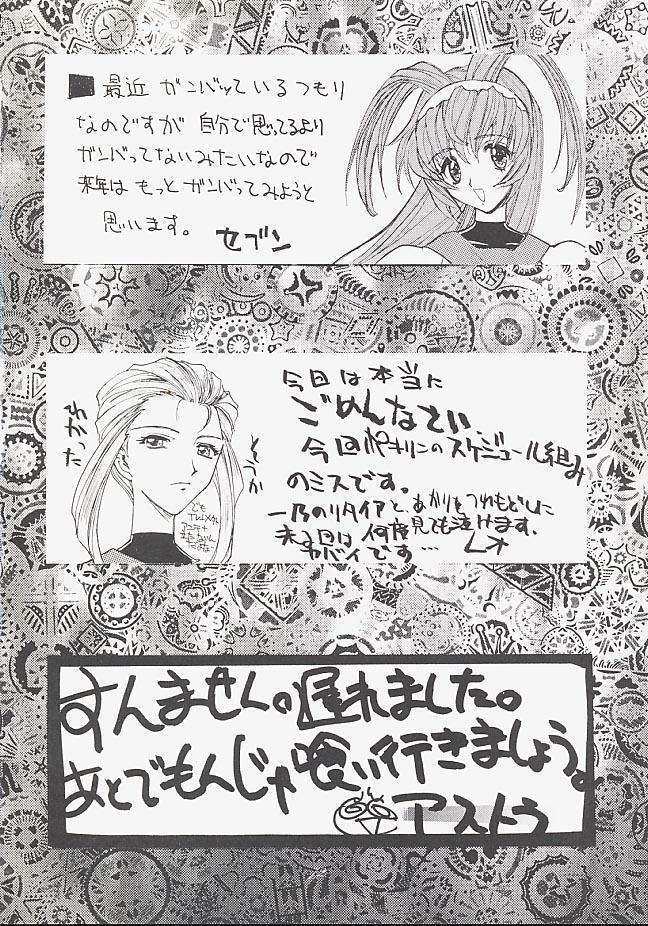 最近 ガンバッているつもり
なのですが 自分で思ってるより
ガンバってないみたいなので
来年は もっと ガンバってみようと
思います。 セブン
今回は本当に
ごめんなさい
今回 のスケジュール組み
のミスです。
のリタイアと、あかりをつれもどしに
来る回は 何度見ても泣けます。
ヤバイです…
でも
すんません。遅れました。
あとでもんじゃ喰い行きましょう。
アストラ